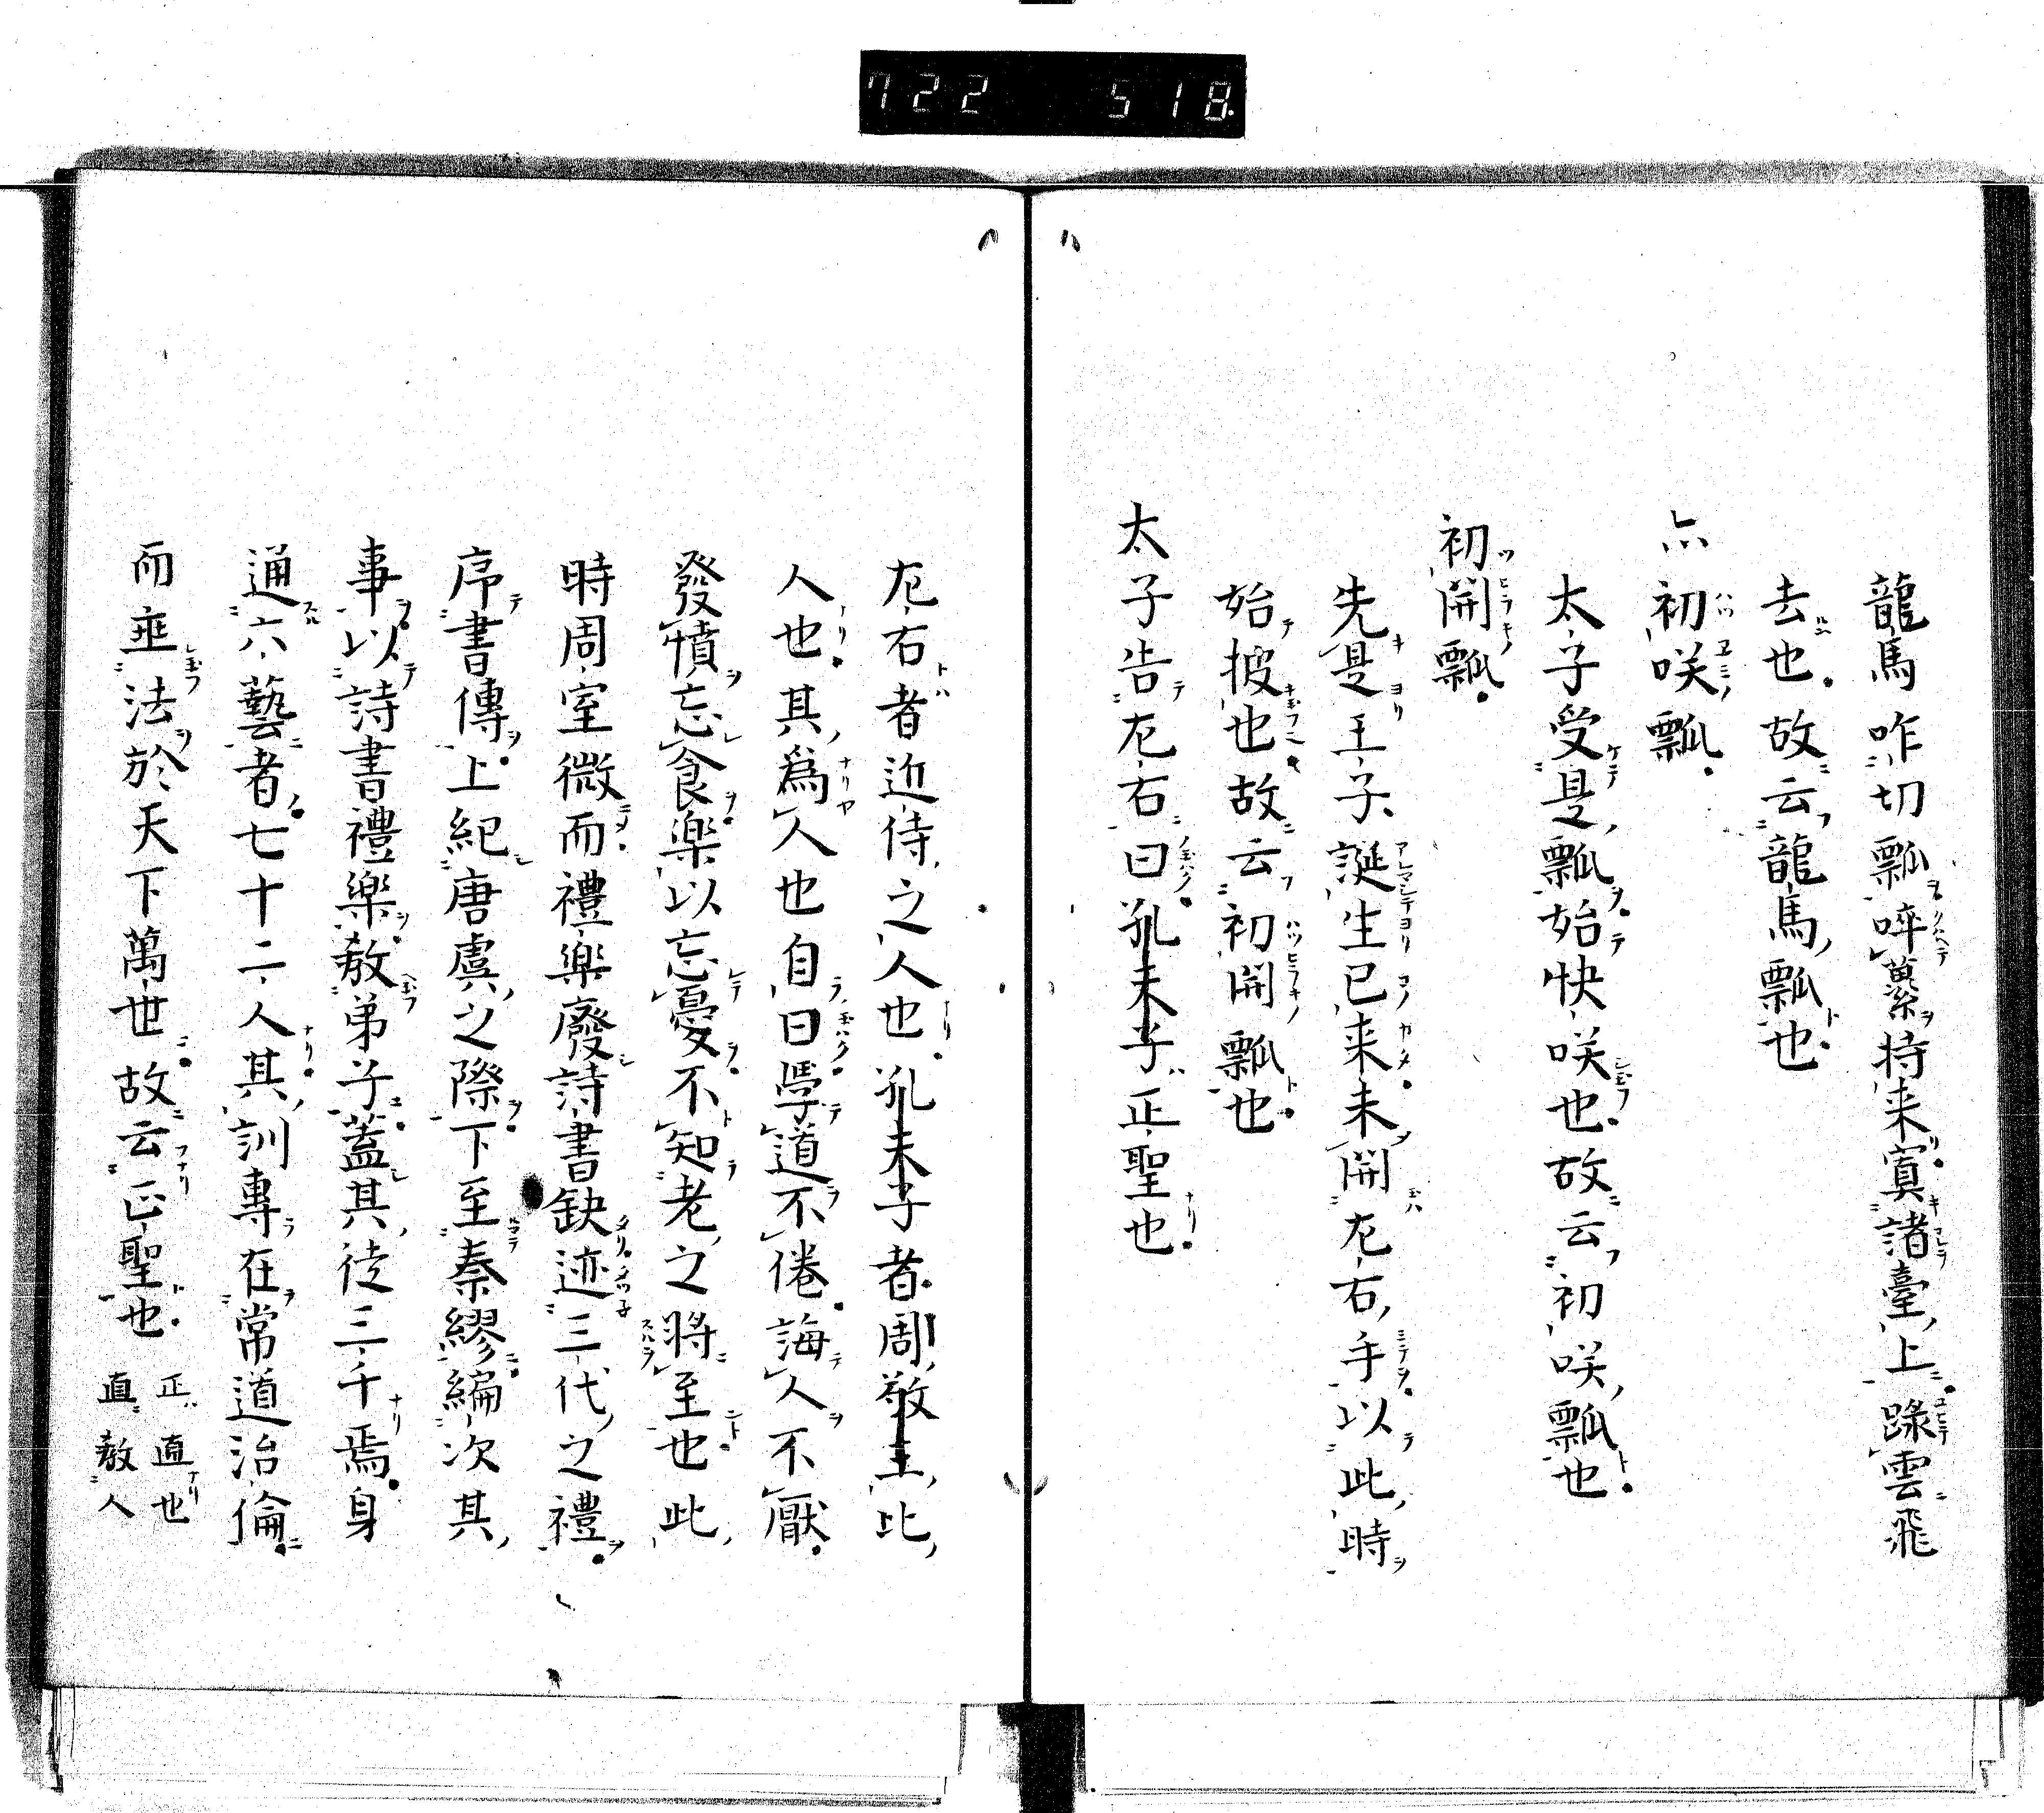 722 518
龍馬咋切瓢啐蘽持来寘諸臺上踪雲飛
去也故云龍馬瓢也
亦初咲瓢
太子受是瓢始快咲也故云初咲瓢也
初開瓢
先是王子誕生已来未開尢右手以此時
始披也故云初開瓢也
太子告尢右曰孔末子正聖也
尢右者近侍之人也孔末子者周敬王比
人也其爲人也自曰學道不倦誨人不厭
發憤忘食楽以忘憂不知老之將至也此
時周室微而禮樂廢詩書缺迹三代之禮
序書傳上紀唐虞之際下至秦繆編次其
事以詩書禮樂教弟子蓋其徒三千焉身
通六藝者七十二人其訓專在常道治倫
而垂法於天下萬世故云正聖也 正直也
直教人